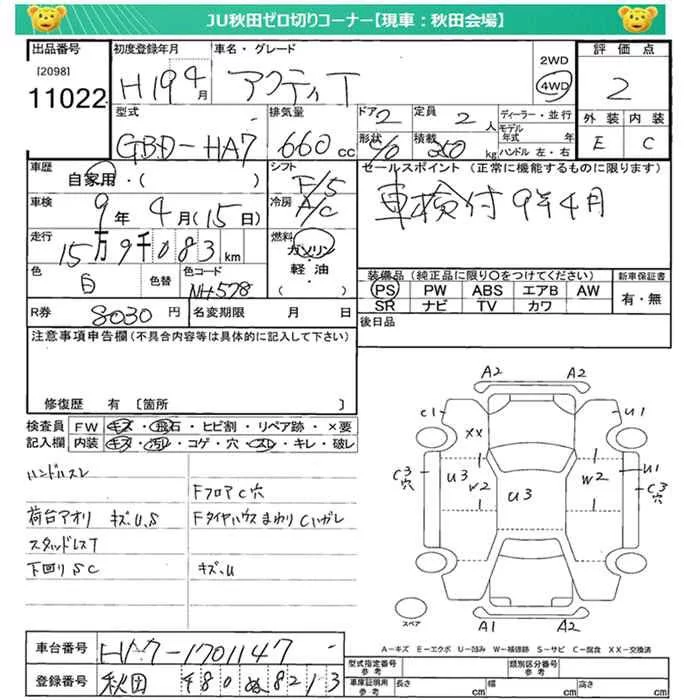 JU秋田ゼロ切りコーナー【現車：秋田会場】
出品番号
[2098]
11022
初度登録年月
H19 4月
車名・グレード
アクティT
2WD
4WD
評価点
2
外装 内装
E C
型式
GBD-HA7
排気量
660cc
ドア 2
形状 S/O
定員 2人
積載 350kg
ディーラー・並行
モデル年式 年
ハンドル 左・右
車歴
自家用・( )
シフト
F/5
車検
9年4月(15日)
冷房
A/C
走行
15万9千083km
燃料
ガソリン・軽油・
色
白
色替
色コード
NH578
セールスポイント (正常に機能するものに限ります)
車検付 9年4月
装備品 (純正品に限り○をつけてください)
PS PW ABS エアB AW
SR ナビ TV カワ
新車保証書
有・無
後日品
R券 8030円
名変期限 月 日
注意事項申告欄(不具合内容等は具体的に記入して下さい)
修復歴 有 〔箇所 〕
検査員記入欄
FW キズ・飛石・ヒビ割・リペア跡・×要
内装 キズ・汚レ・コゲ・穴・スレ・キレ・破レ
ハンドルスレ
FフロアC穴
荷台アオリ キズ.U.S
FタイヤハウスまわりCハガレ
スタッドレスT
下回りSC
キズ.U
A2 A2
C1 U1
XX
C3穴 U3 W2 U3 W2 U1
C3穴
A1 A2
スペア
A-キズ E-エクボ U-凹み W-補修跡 S-サビ C-腐食 XX-交換済
車台番号 HA7-1701147
登録番号 秋田 480 ぬ 8213
型式指定番号 参考
類別区分番号 参考
車庫証明用 参考
長さ cm 幅 cm 高さ cm